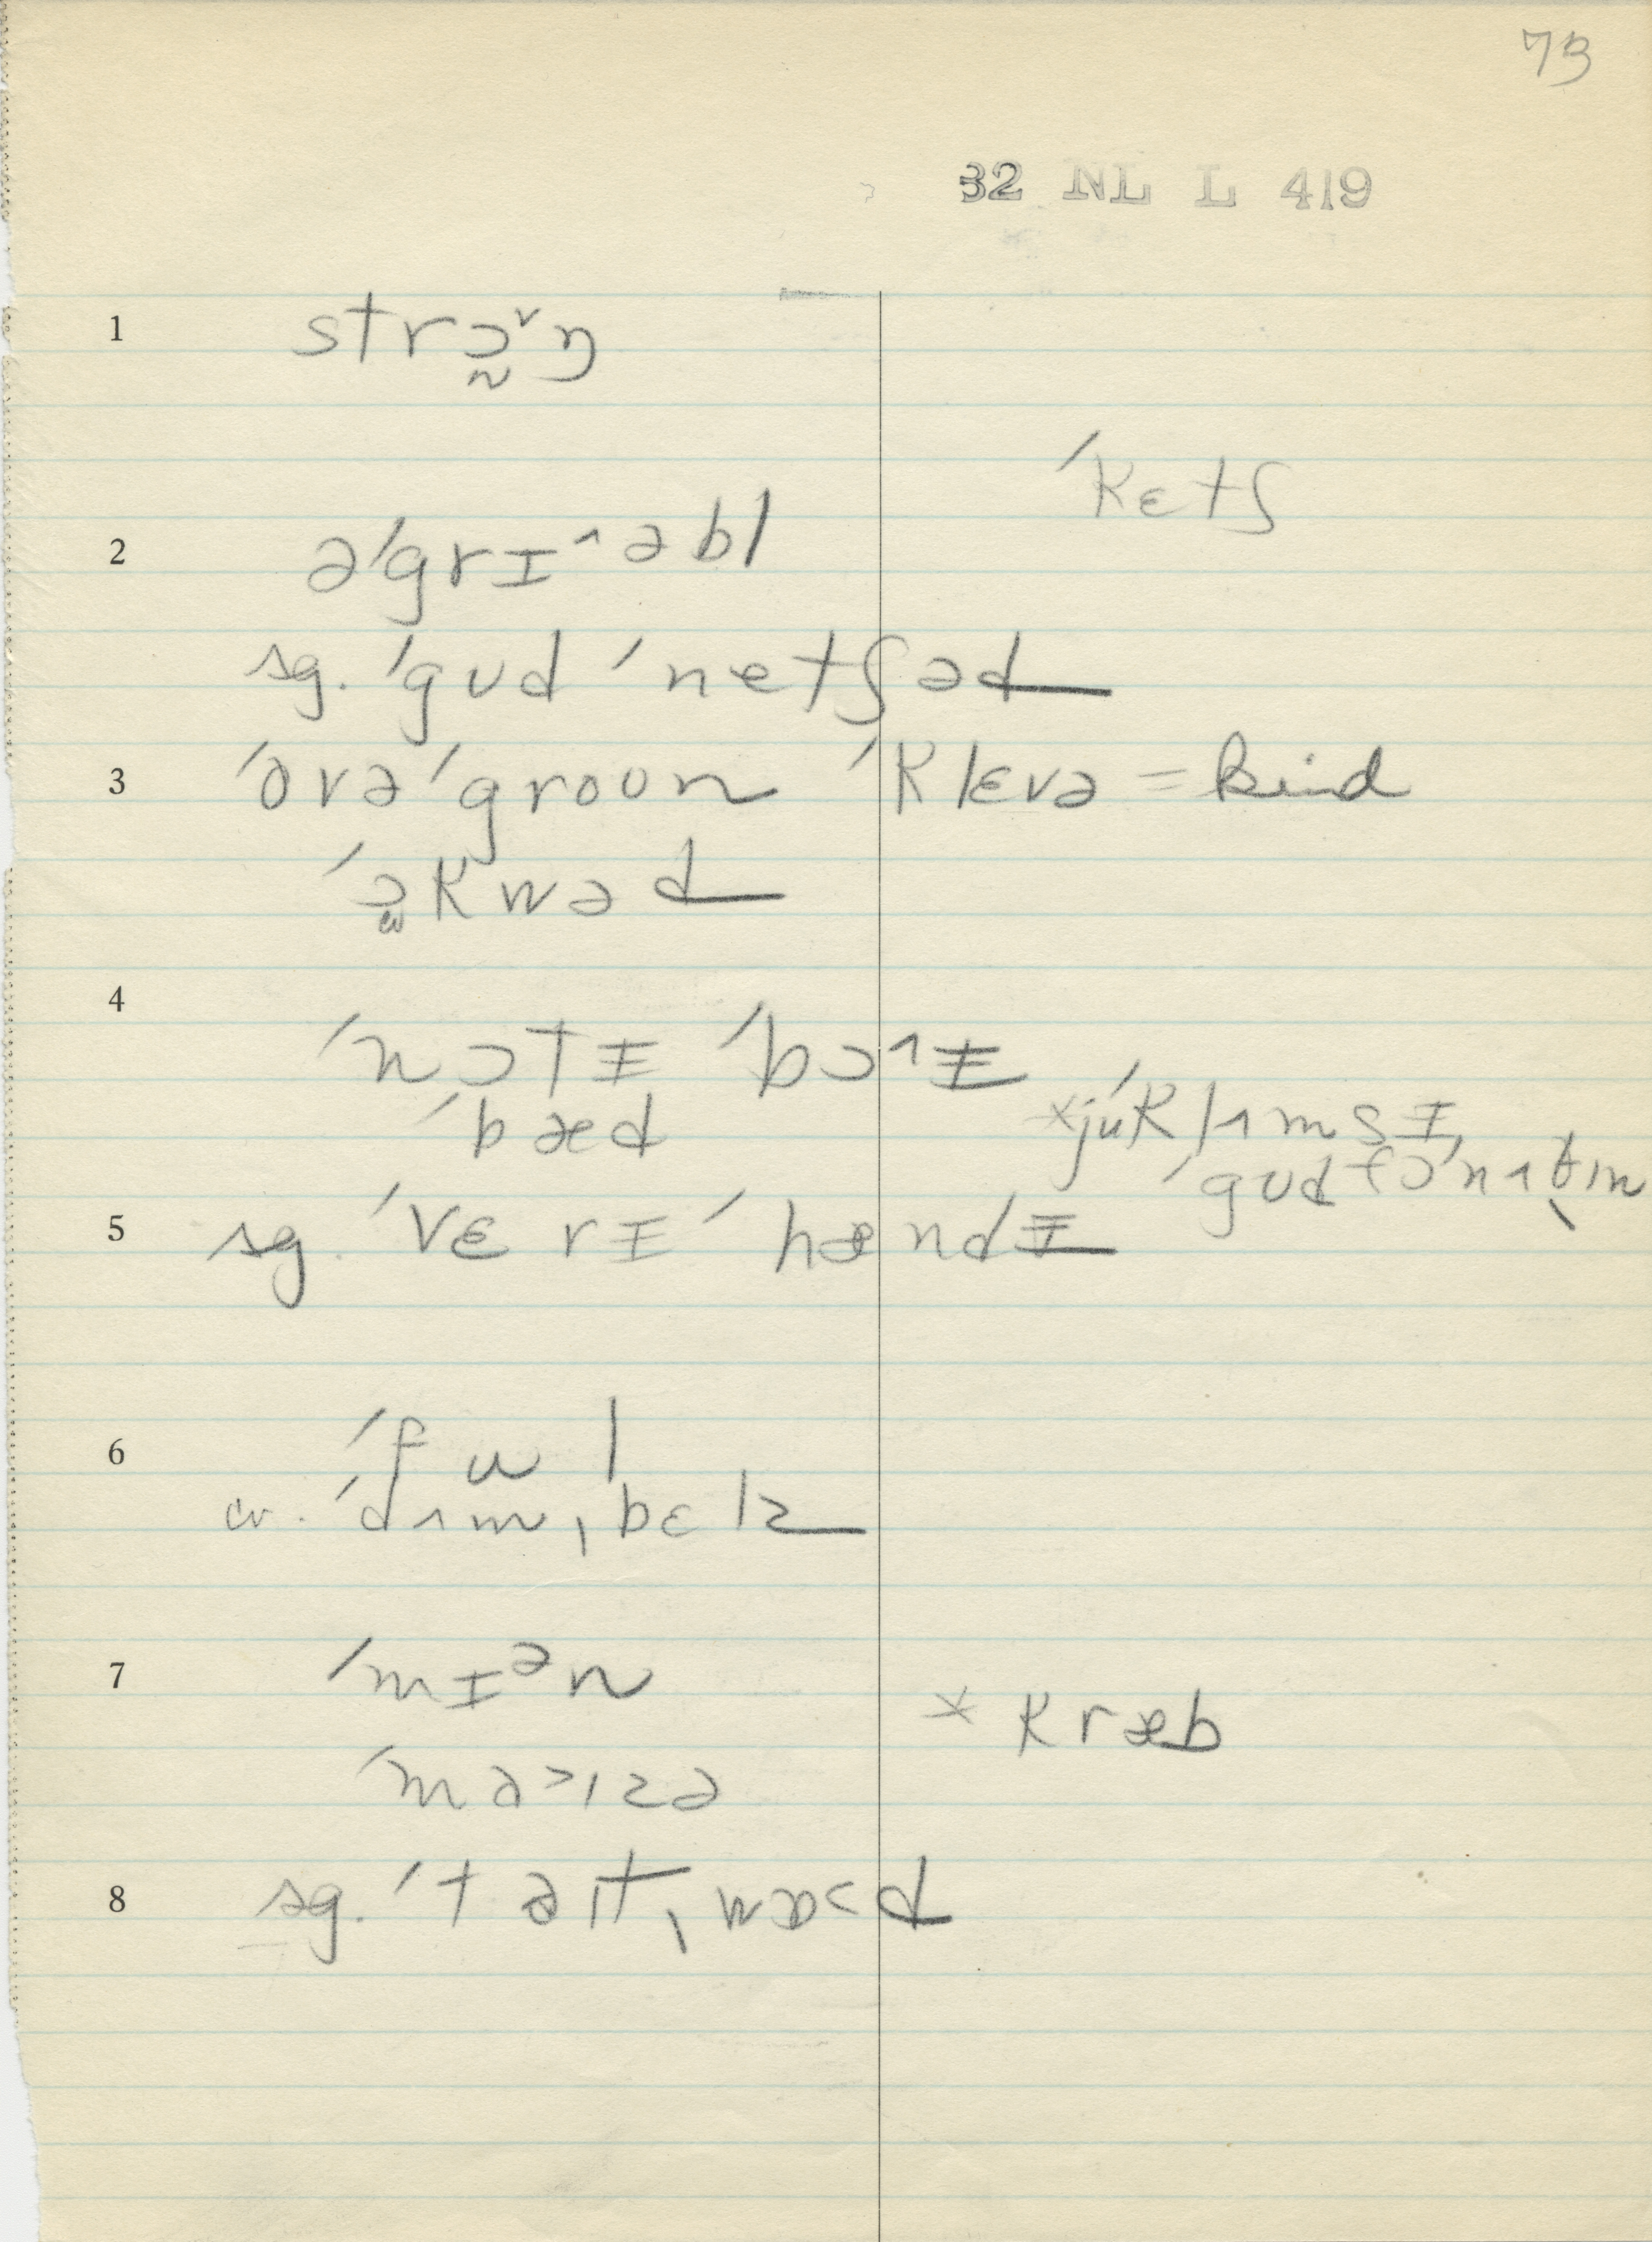 73
32 NL L 419
1 strɔ̰˅ŋ
ˈkɛtʃ
2 əˈgrɪ^əbl
sg. ˈgʊd ˈnetʃəd
3 ˈovəˈgroʊn ˈklɛvə = kind
ˈɔkwəd
4 ˈnɔtɨ ˈbɔ^ɨ
ˈbæd
*júˈklʌmsɪ,
ˈgʊd fɔˈnʌθɪn
5 sg. ˈvɛrɪ ˈhændɨ
6 ˈful
cv. ˈdʌmˌbɛlz
7 ˈmɪᵊn
* kræb
ˈmə>ɪzə
8 sg. ˈtəɪtˌwɒ<d